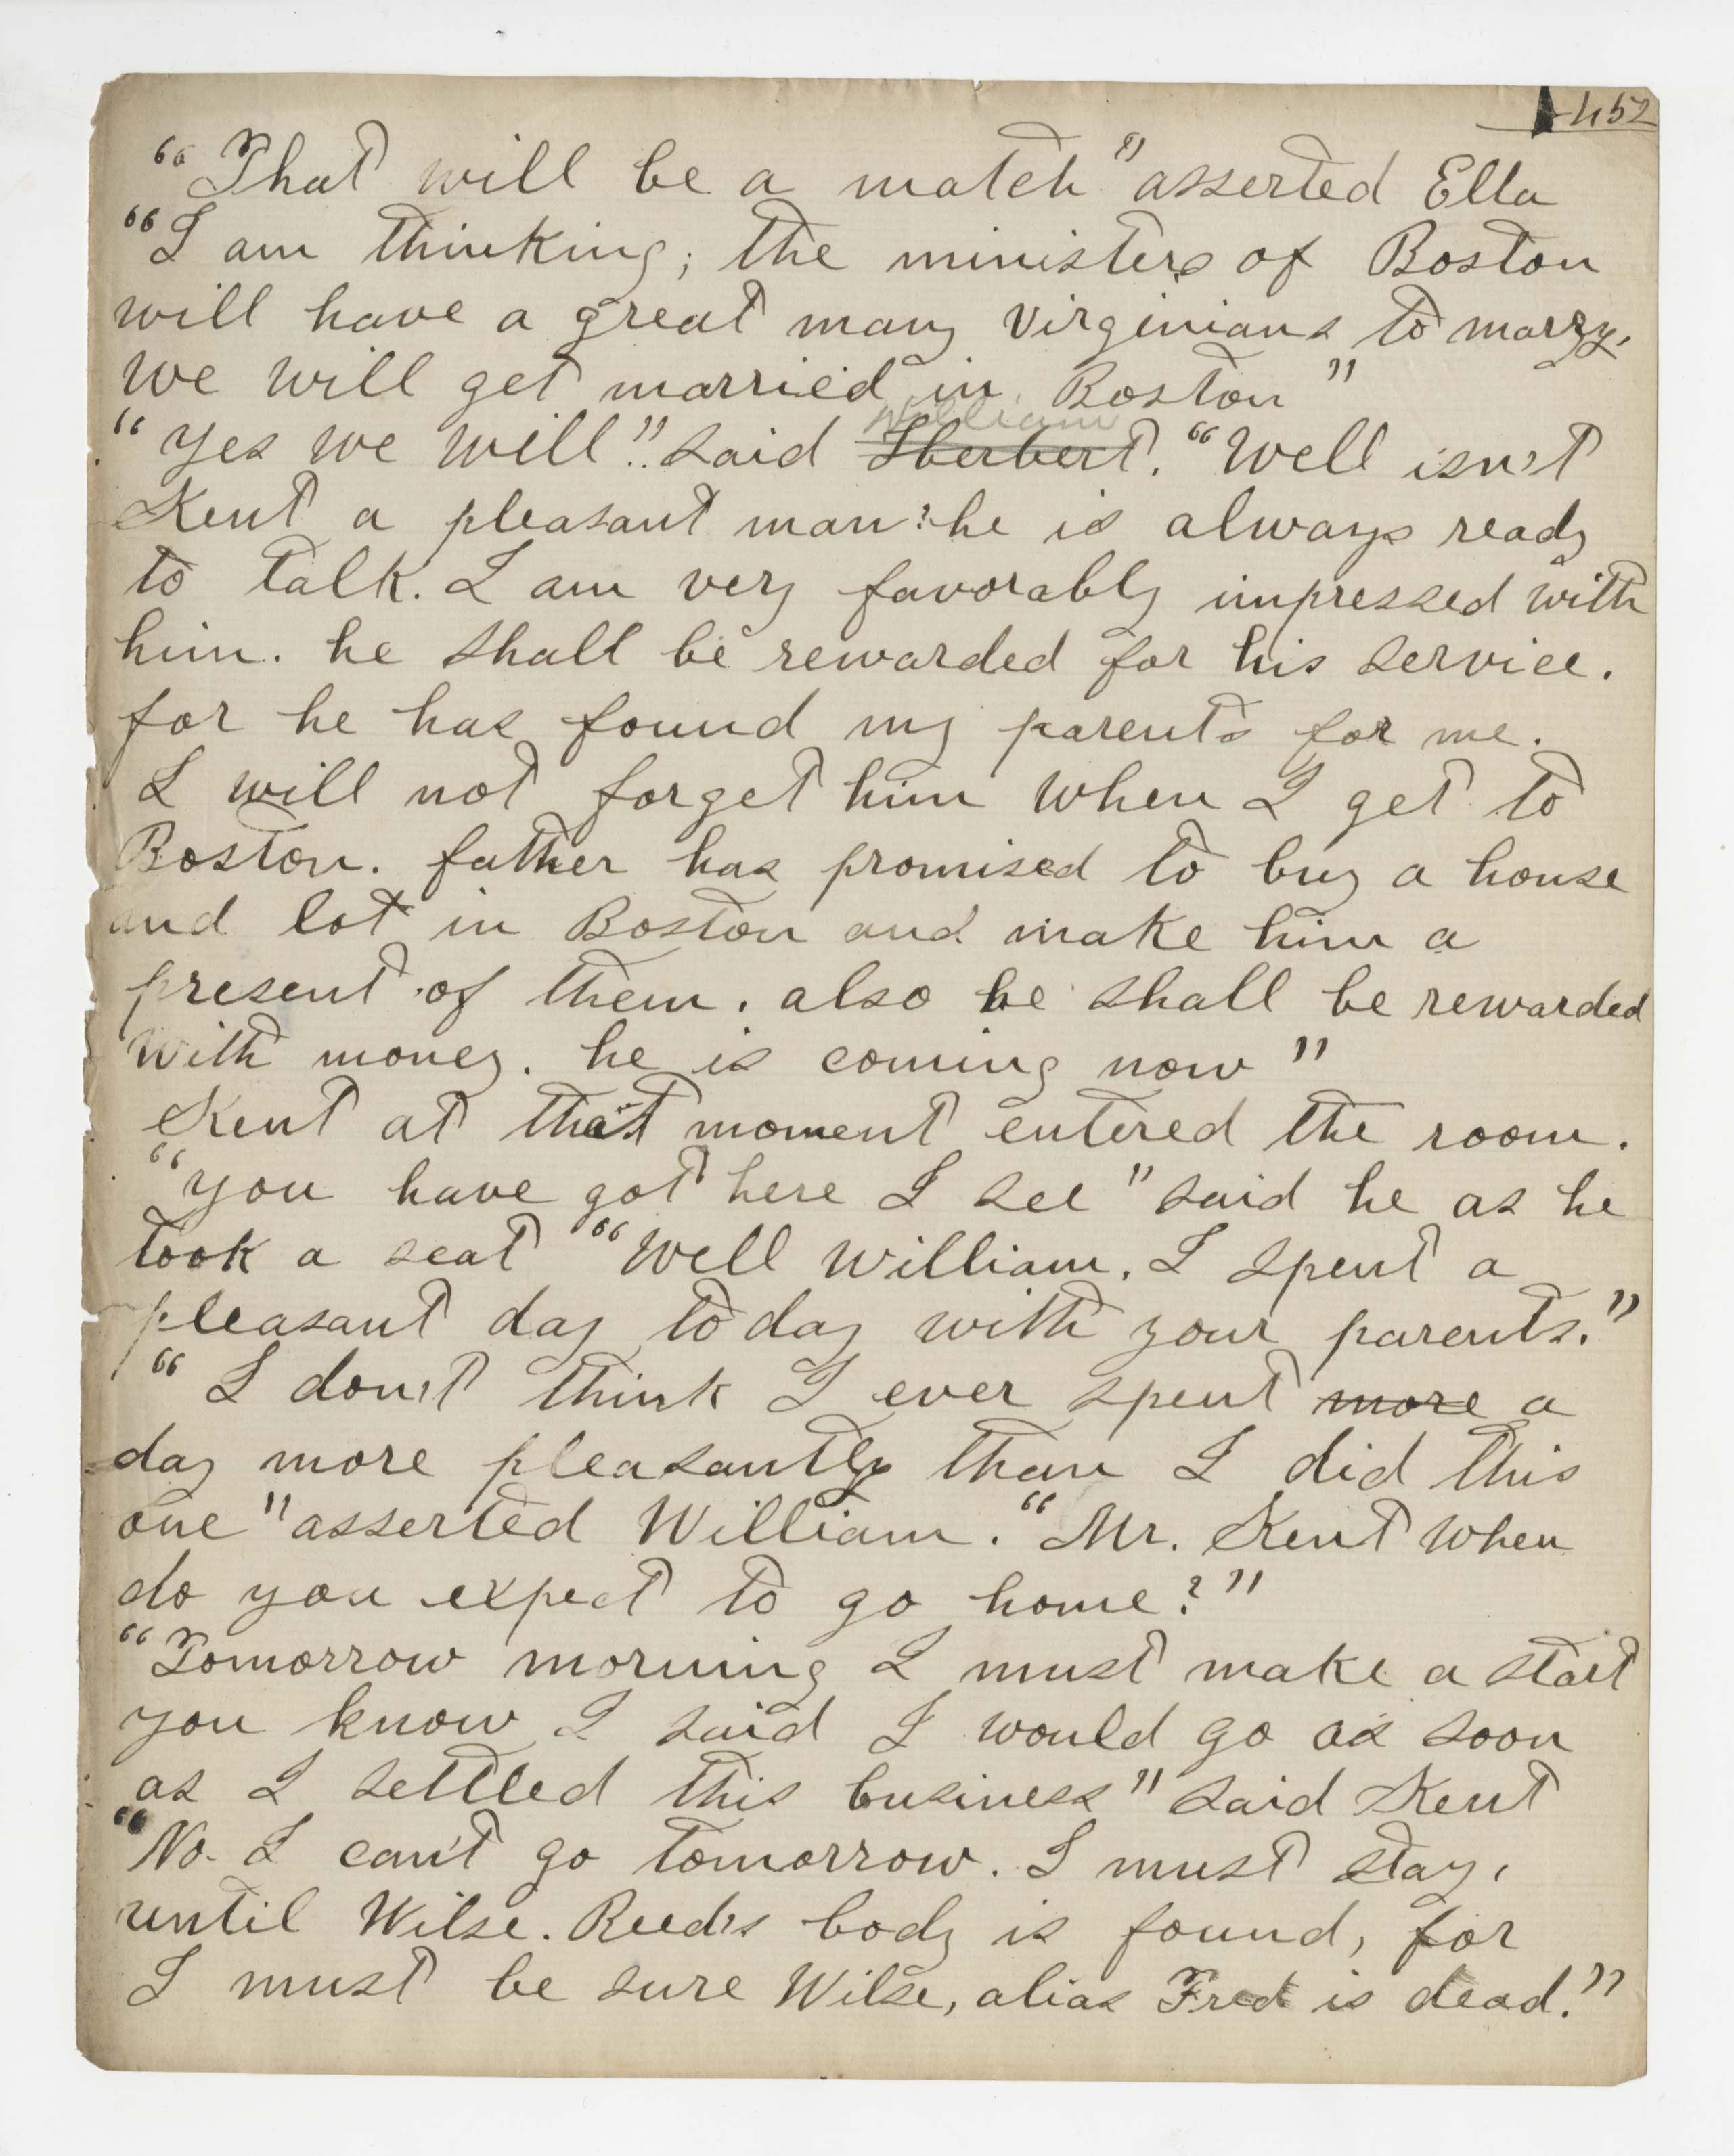 452
"That will be a match" asserted Ella
"I am thinking; the ministers of Boston
will have a great many Virginians to marry.
we will get married in Boston"
William
"Yes we will". said ~~Herbert~~. "Well isn't
Kent a pleasant man? he is always ready
to talk. I am very favorably impressed with
him. he shall be rewarded for his service.
for he has found my parents for me.
I will not forget him when I get to
Boston. father has promised to buy a house
and lot in Boston and make him a
present of them. also he shall be rewarded
with money. he is coming now"
Kent at that moment entered the room.
"you have got here I see" said he as he
took a seat "Well William. I spent a
pleasant day today with your parents."
"I don't think I ever spent ~~more~~ a
day more pleasantly than I did this
one" asserted William. "Mr. Kent when
do you expect to go home?"
"Tomorrow morning I must make a start
you know I said I would go as soon
as I settled this business" said Kent
"No. I can't go tomorrow. I must stay,
until Wilse. Reed's body is found, for
I must be sure Wilse, alias Fred is dead."